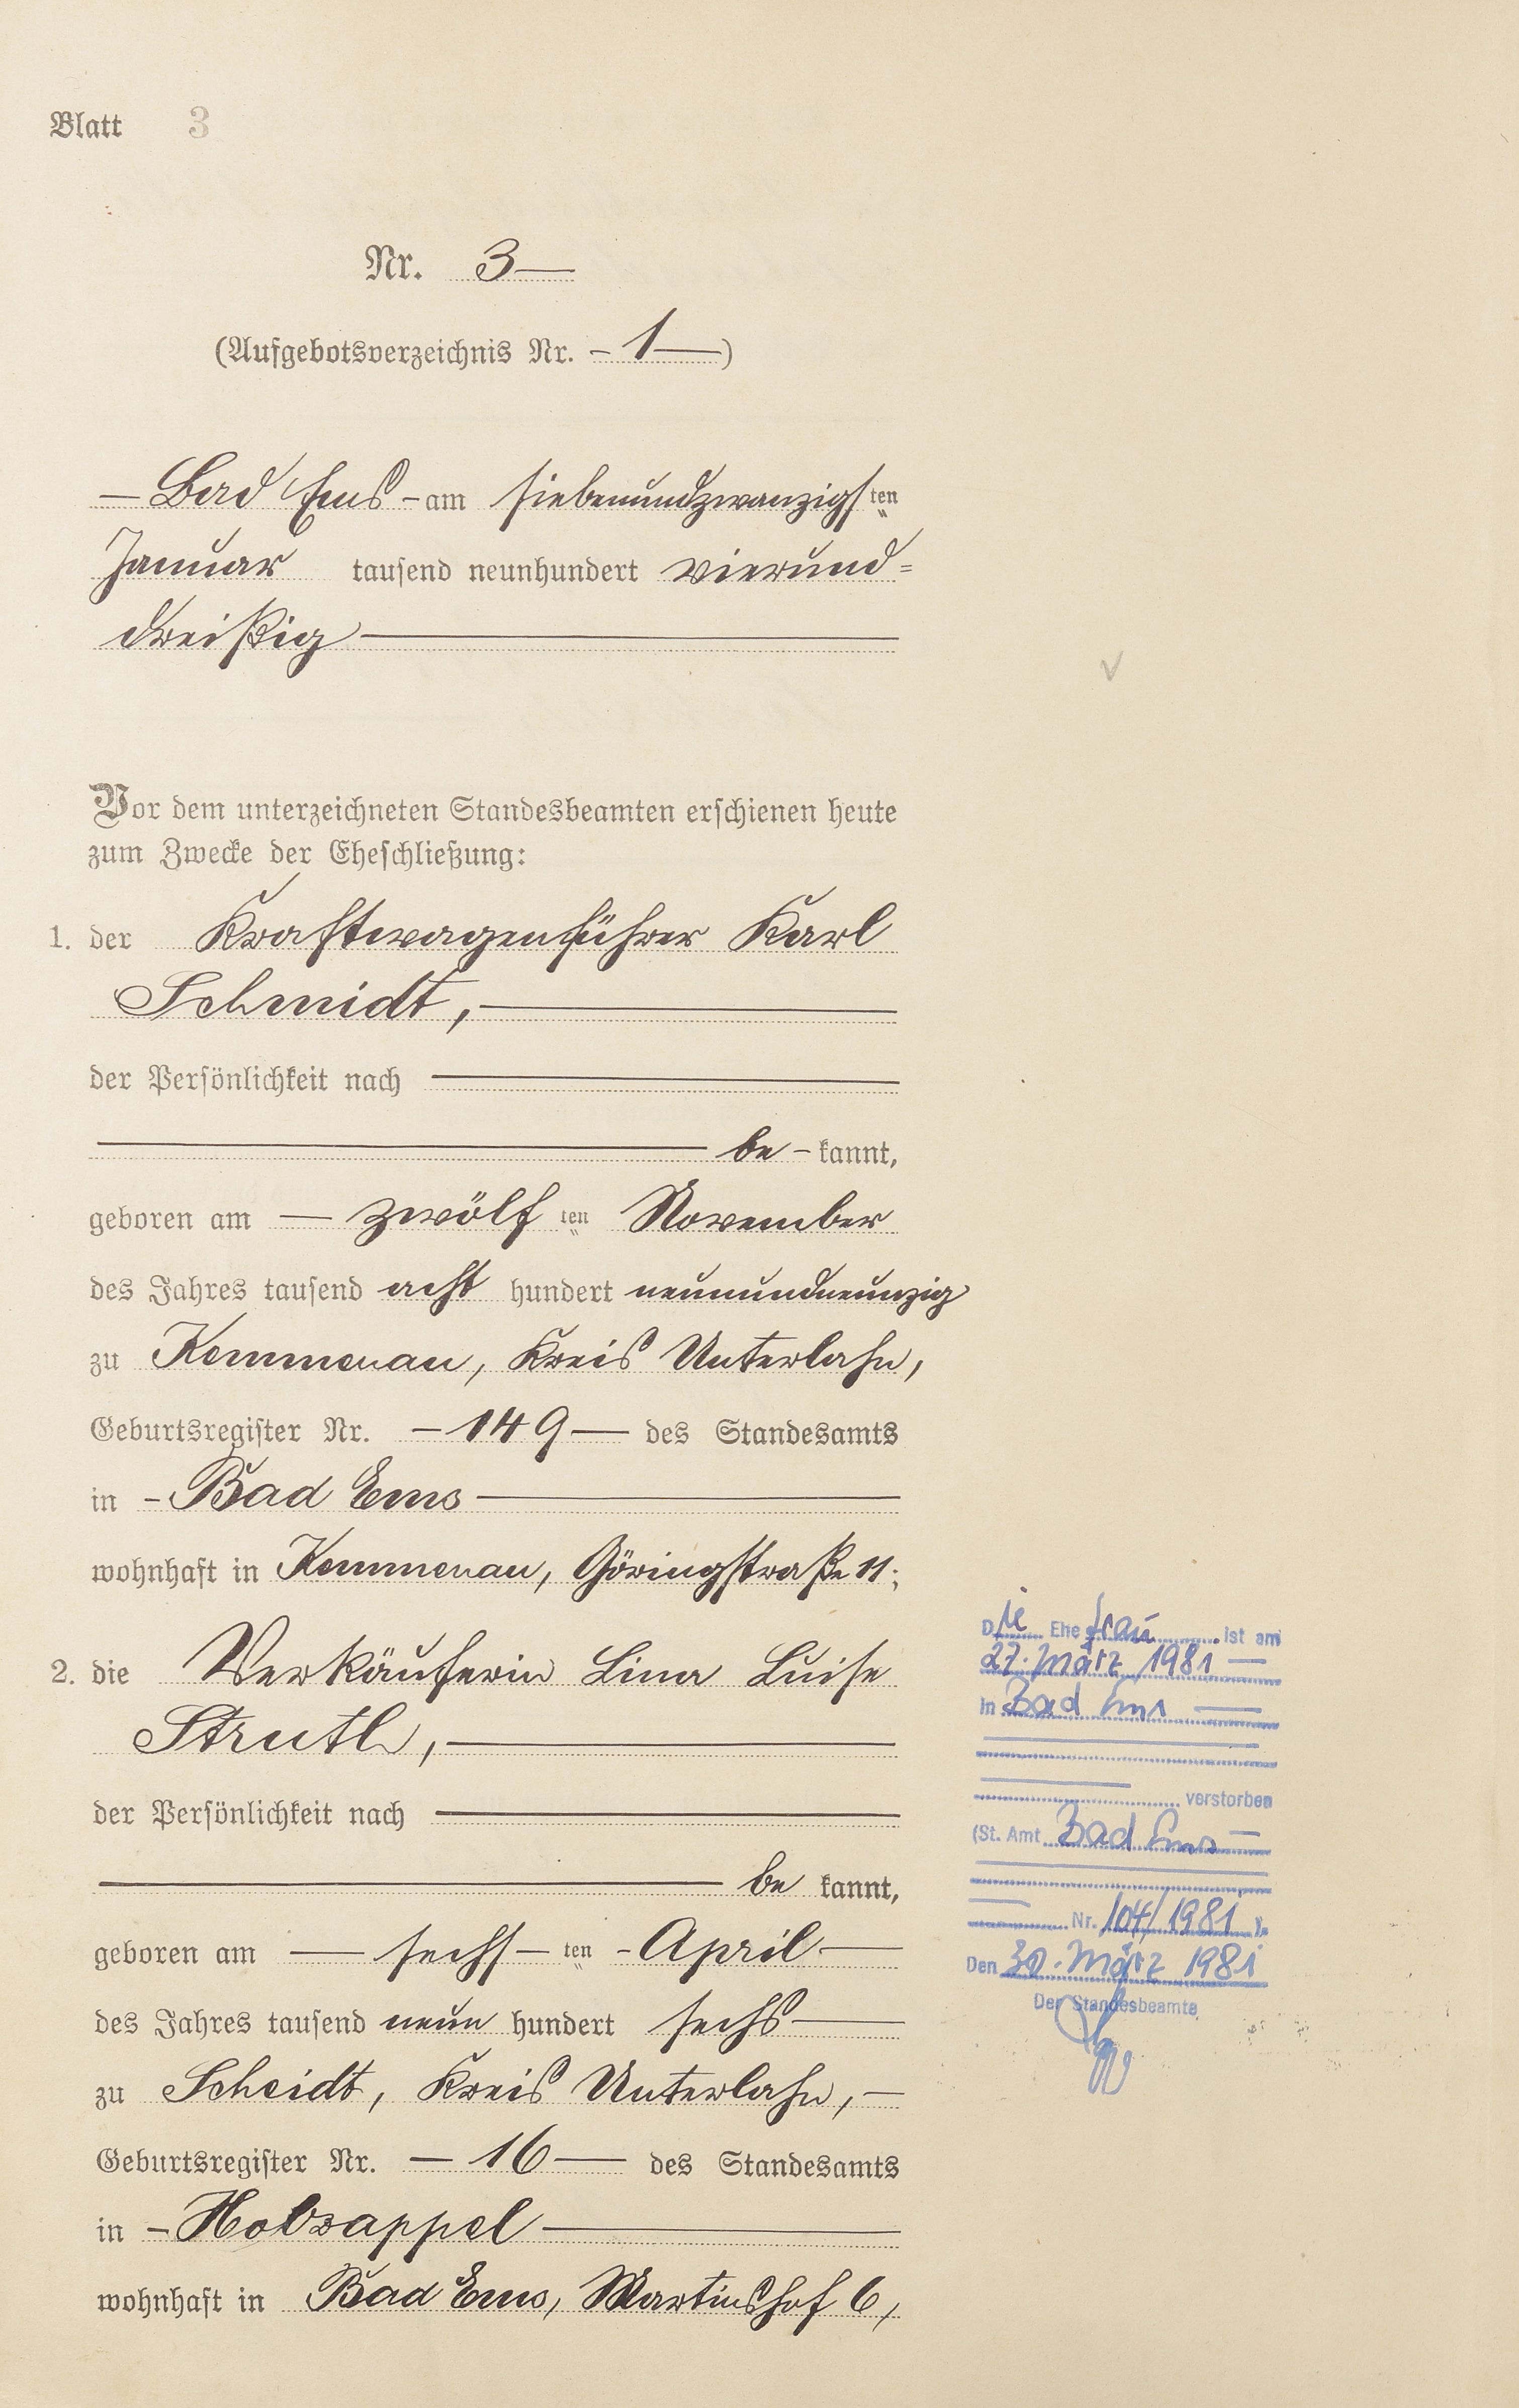 Blatt 3
Nr. 3 —
(Aufgebotsverzeichnis Nr. – 1 —)
— Bad Ems – am siebenundzwanzigsten
Januar tausend neunhundert vierund=
dreißig —
Vor dem unterzeichneten Standesbeamten erschienen heute
zum Zwecke der Eheschließung:
1. der Kraftwagenführer Karl
Schmidt, —
der Persönlichkeit nach —
— be – kannt,
geboren am — zwölf ten November
des Jahres tausend acht hundert neunundneunzig
zu Kemmenau, Kreis Unterlahn,
Geburtsregister Nr. — 149 — des Standesamts
in – Bad Ems —
wohnhaft in Kemmenau, Göringstraße 11;
2. die Verkäuferin Lina Luise
Struth, —
der Persönlichkeit nach —
— be kannt,
geboren am — sechs — ten – April —
des Jahres tausend neun hundert sechs —
zu Scheidt, Kreis Unterlahn, —
Geburtsregister Nr. — 16 — des Standesamts
in – Holzappel —
wohnhaft in Bad Ems, Martinshof 6,
Die Ehefrau ist am
27. März 1981 —
in Bad Ems —
verstorben
(St. Amt Bad Ems —
Nr. 104/1981).
Den 30. März 1981
Der Standesbeamte